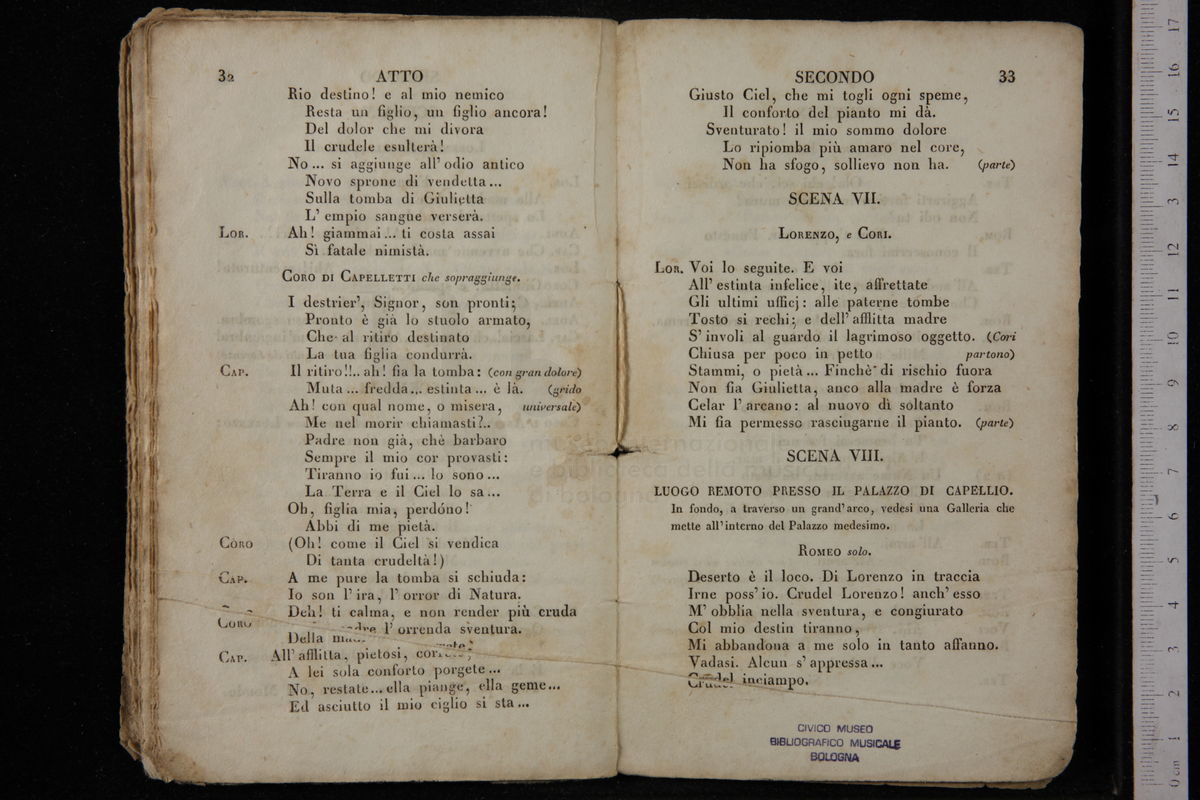 32 ATTO
Rio destino! e al mio nemico
Resta un figlio, un figlio ancora!
Del dolor che mi divora
Il crudele esulterà!
No... si aggiunge all' odio antico
Novo sprone di vendetta...
Sulla tomba di Giulietta
L' empio sangue verserà.
Lor. Ah! giammai... ti costa assai
Sì fatale nimistà.
Coro di Capelletti che sopraggiunge.
I destrier', Signor, son pronti;
Pronto è già lo stuolo armato,
Che al ritiro destinato
La tua figlia condurrà.
Cap. Il ritiro!!.. ah! fia la tomba: (con gran dolore)
Muta ... fredda... estinta ... è là. (grido
Ah! con qual nome, o misera, universale)
Me nel morir chiamasti?..
Padre non già, chè barbaro
Sempre il mio cor provasti:
Tiranno io fui... lo sono...
La Terra e il Ciel lo sa...
Oh, figlia mia, perdóno!
Abbi di me pietà.
Coro (Oh! come il Ciel si vendica
Di tanta crudeltà!)
Cap. A me pure la tomba si schiuda:
Io son l' ira, l' orror di Natura.
Coro Deh! ti calma, e non render più cruda
Della l' orrenda sventura.
Cap. All' afflitta, pietosi,
A lei sola conforto porgete...
No, restate... ella piange, ella geme...
Ed asciutto il mio ciglio si sta...
SECONDO 33
Giusto Ciel, che mi togli ogni speme,
Il conforto del pianto mi dà.
Sventurato! il mio sommo dolore
Lo ripiomba più amaro nel core,
Non ha sfogo, sollievo non ha. (parte)
SCENA VII.
Lorenzo, e Cori.
Lor. Voi lo seguite. E voi
All' estinta infelice, ite, affrettate
Gli ultimi ufficj: alle paterne tombe
Tosto si rechi; e dell' afflitta madre
S' involi al guardo il lagrimoso oggetto. (Cori
Chiusa per poco in petto partono)
Stammi, o pietà... Finchè di rischio fuora
Non fia Giulietta, anco alla madre è forza
Celar l' arcano: al nuovo dì soltanto
Mi fia permesso rasciugarne il pianto. (parte)
SCENA VIII.
LUOGO REMOTO PRESSO IL PALAZZO DI CAPELLIO.
In fondo, a traverso un grand' arco, vedesi una Galleria che
mette all' interno del Palazzo medesimo.
Romeo solo.
Deserto è il loco. Di Lorenzo in traccia
Irne poss' io. Crudel Lorenzo! anch' esso
M' obblia nella sventura, e congiurato
Col mio destin tiranno,
Mi abbandona a me solo in tanto affanno.
Vadasi. Alcun s' appressa...
Crudel inciampo.
CIVICO MUSEO
BIBLIOGRAFICO MUSICALE
BOLOGNA